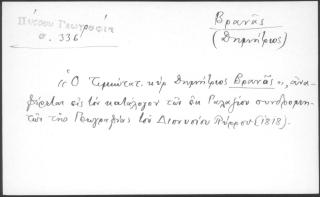 Πύρρου Γεωγραφία
σ. 336
Βρανᾶς
(Δημήτριος)
"Ὁ Τιμιώτατ. κὺρ Δημήτριος Βρανᾶς", ἀνα-
φέρεται εἰς τὸν κατάλογον τῶν ἐκ Γαλαζίου συνδρομη-
τῶν τῆς Γεωγραφίας τοῦ Διονυσίου Πύρρου (1818).